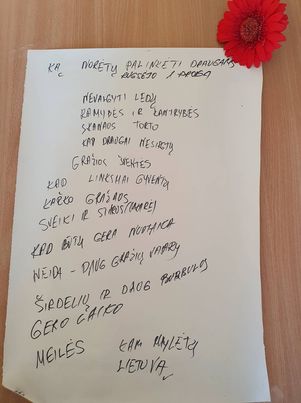 KĄ NORĖTŲ PALINKĖTI DRAUGAMS
RUGSĖJO
NEVALGYTI LEDŲ
RAMYBĖS IR KANTRYBĖS
SKANAUS TORTO
KAD DRAUGAI NESIRGTŲ
GRAŽIOS ŠVENTĖS
KAD LINKSMAI GYVENTŲ
KAŽKO GRAŽAUS
SVEIKI IR
KAD BŪTŲ GERA NUOTAIKA
VEIDA - DAUG GRAŽIŲ
ŠIRDELIŲ IR DAUG
GERO LAIKO
MEILĖS KAD MYLĖTŲ
LIETUVĄ